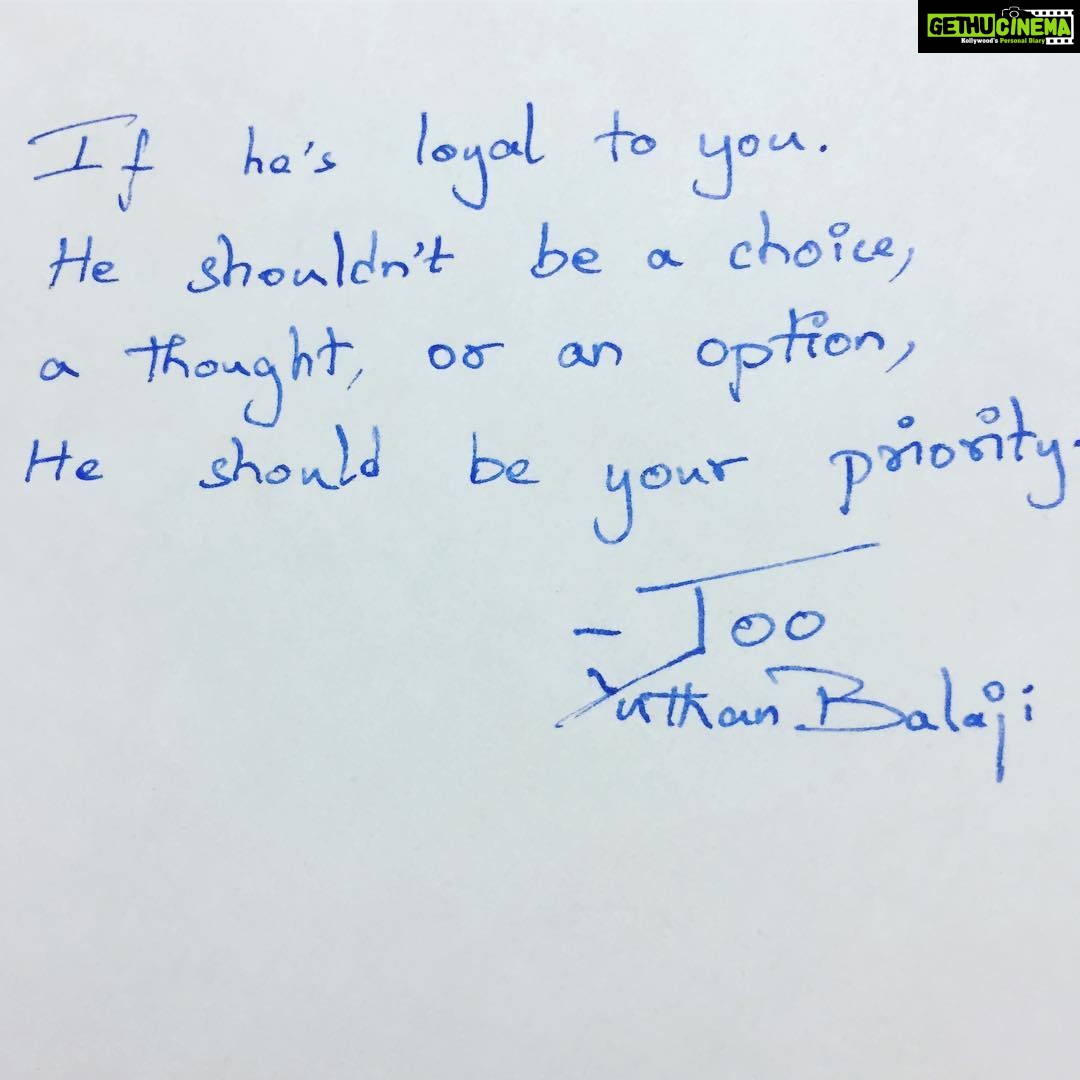 GETHUCINEMA
Kollywood's Personal Diary
If he's loyal to you.
He shouldn't be a choice,
a thought, or an option,
He should be your priority.
- Joo
Yuthan Balaji